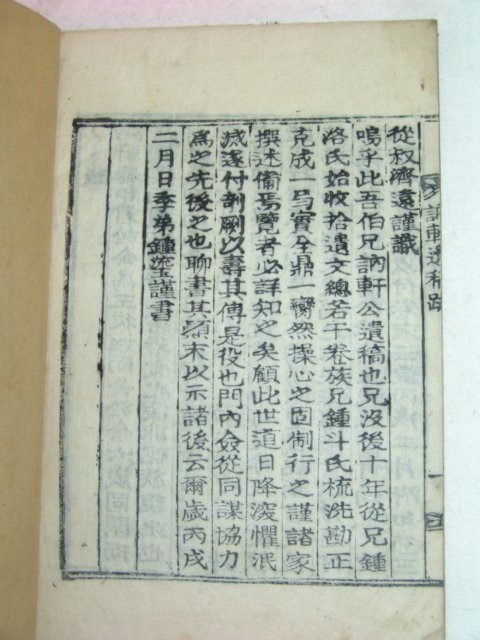 從叔濟遠謹識
嗚乎此吾伯兄訥軒公遺稿也兄沒後十年從兄鍾
洛氏始收拾遺文總若干卷族兄鍾斗氏梳洗勘正
克成一局實全鼎一臠然操心之固制行之謹諸家
撰述備焉覽者必詳知之矣顧此世道日降浚懼泯
滅遂付剞劂以壽其傳是役也門內僉從同謀協力
爲之先後之也聊書其顚末以示諸後云爾歲丙戌
二月日季弟鍾瑩謹書
訥軒遺稿跋